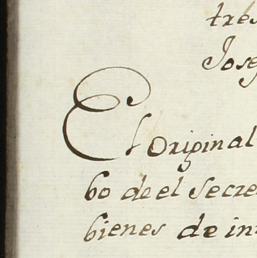 tres
Jose
El Original
bo de el Secre
bienes de in